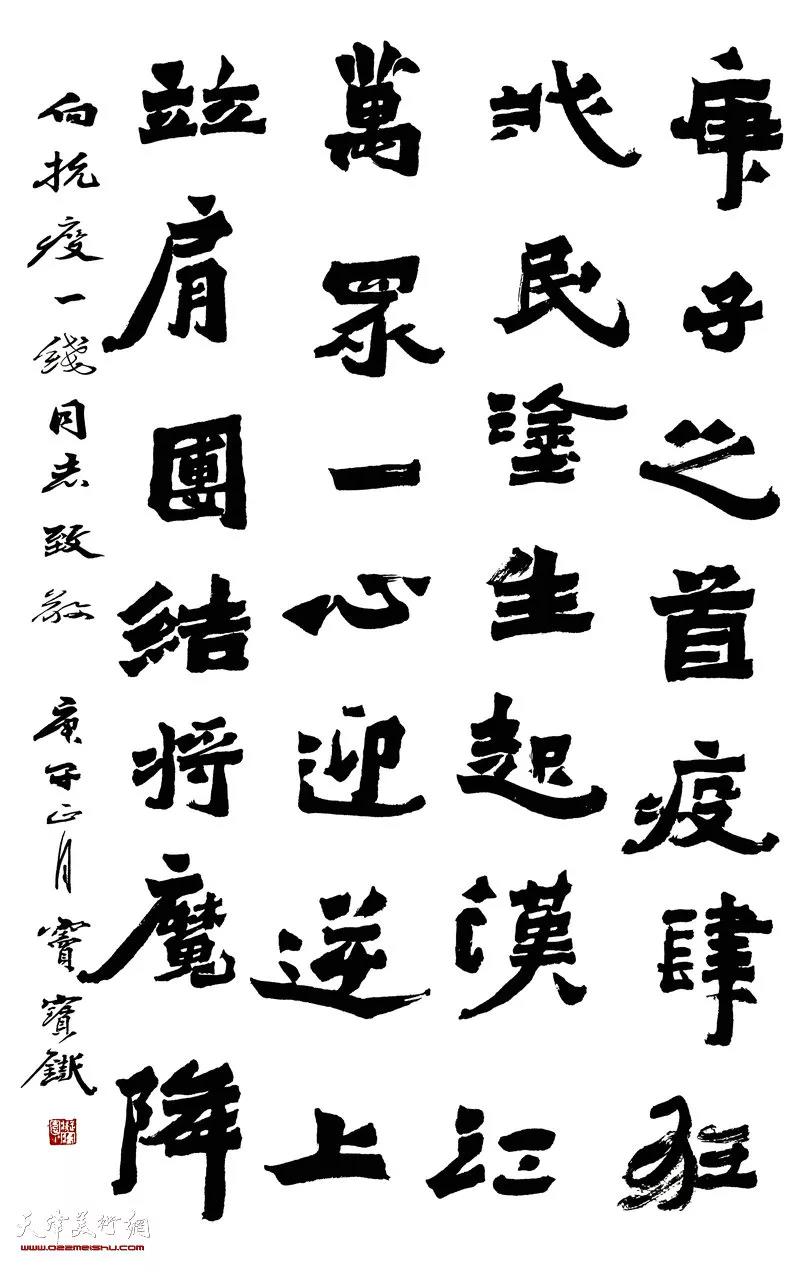 庚子之首疫肆狂
民塗生起漢江
萬眾一心迎逆上
竝肩團結将魔降
向抗疫一綫同志致敬 庚子正月 竇寶鐵
天津美術網
www.022meishu.com